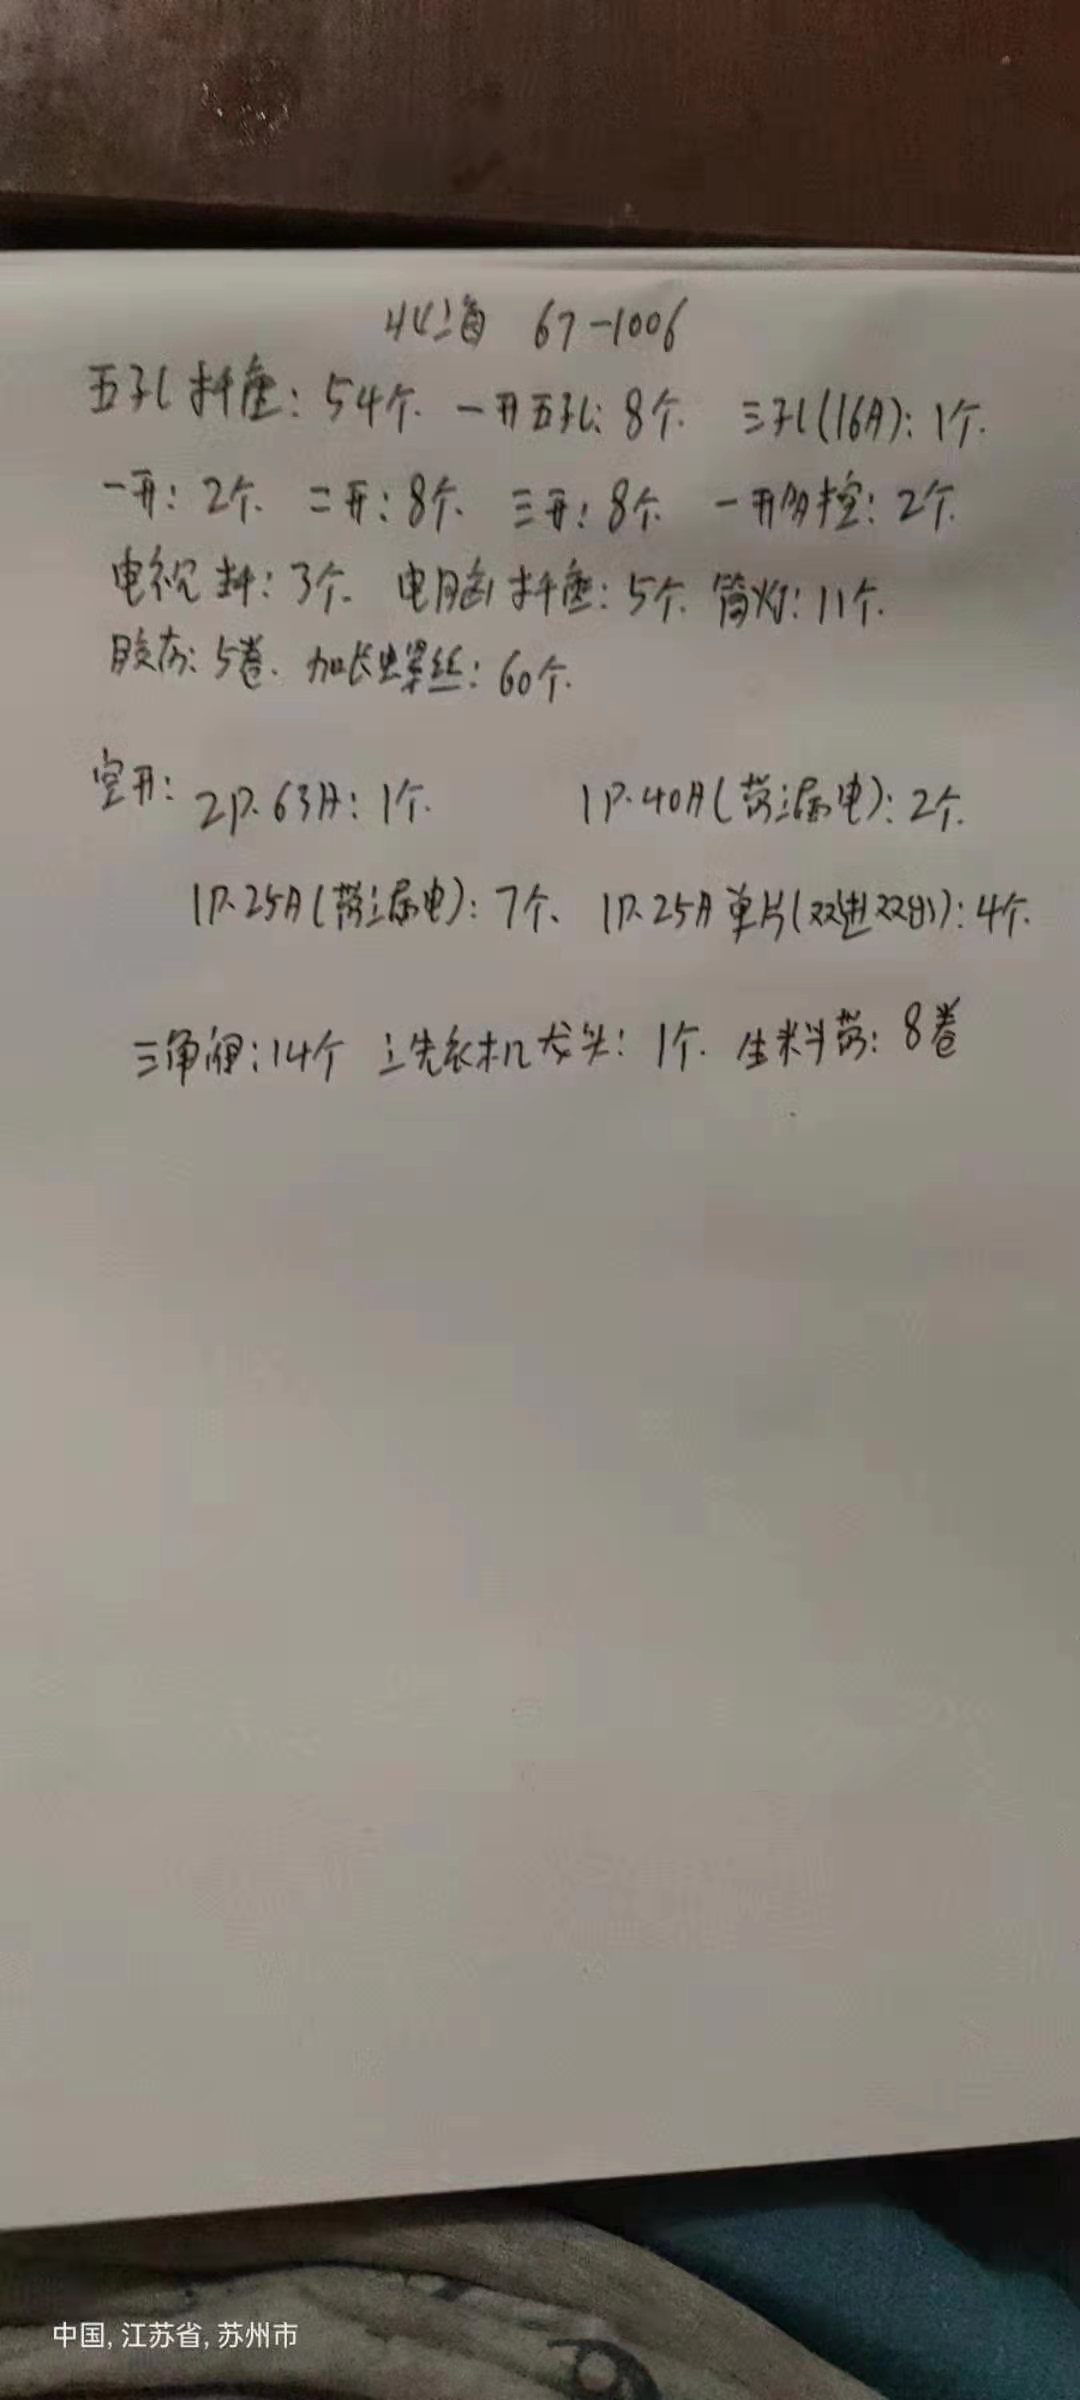 67-1006
五孔插座: 54个. 一开五孔: 8个. 三孔(16A): 1个.
一开: 2个. 二开: 8个. 三开: 8个. 一开多控: 2个.
电视插: 3个. 电脑插座: 5个. 筒灯: 11个.
胶布: 5卷. 加长螺丝: 60个.
空开: 2P.63A: 1个. 1P.40A(带漏电): 2个.
1P.25A(带漏电): 7个、 1P.25A单片(双进双出): 4个.
三角阀: 14个 洗衣机龙头: 1个. 生料带: 8卷
中国, 江苏省, 苏州市